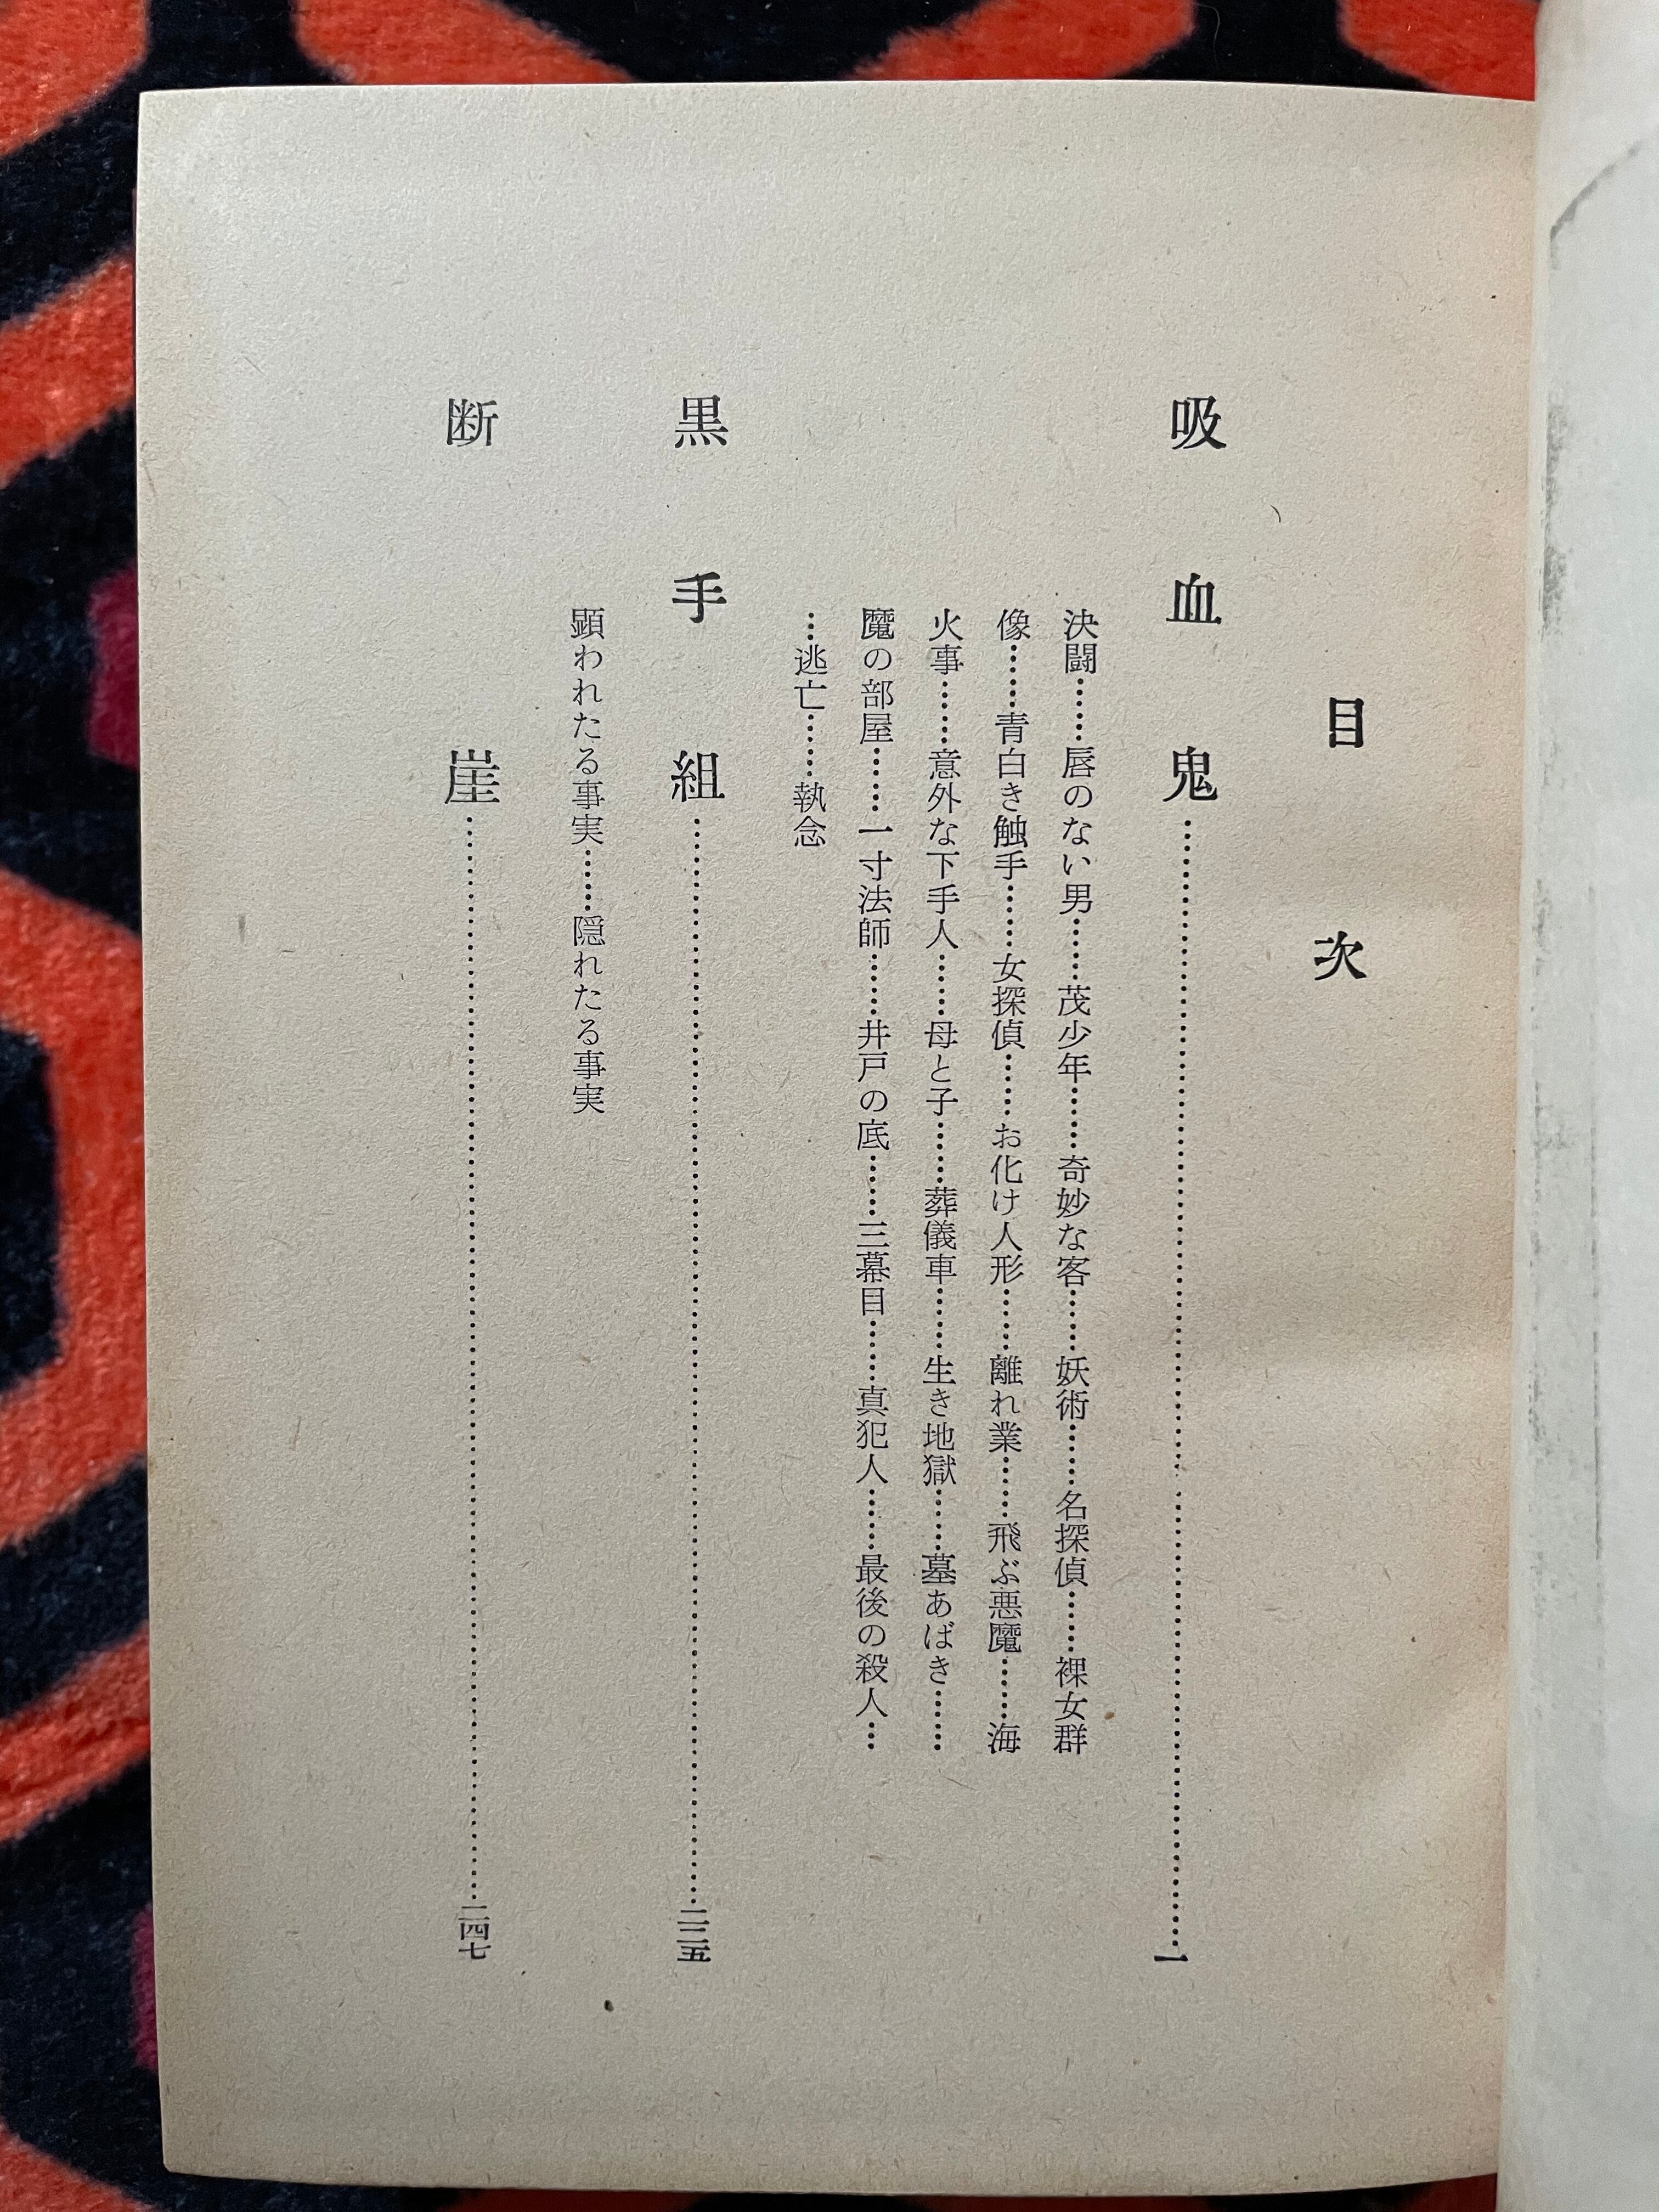 目次
吸血鬼……………………一
決闘……唇のない男……茂少年……奇妙な客……妖術……名探偵……裸女群
像……青白き触手……女探偵……お化け人形……離れ業……飛ぶ悪魔……海
火事……意外な下手人……母と子……葬儀車……生き地獄……墓あばき……
魔の部屋……一寸法師……井戸の底……三幕目……真犯人……最後の殺人…
…逃亡……執念
黒手組……………………二二五
顕われたる事実……隠れたる事実
断崖……………………二四七